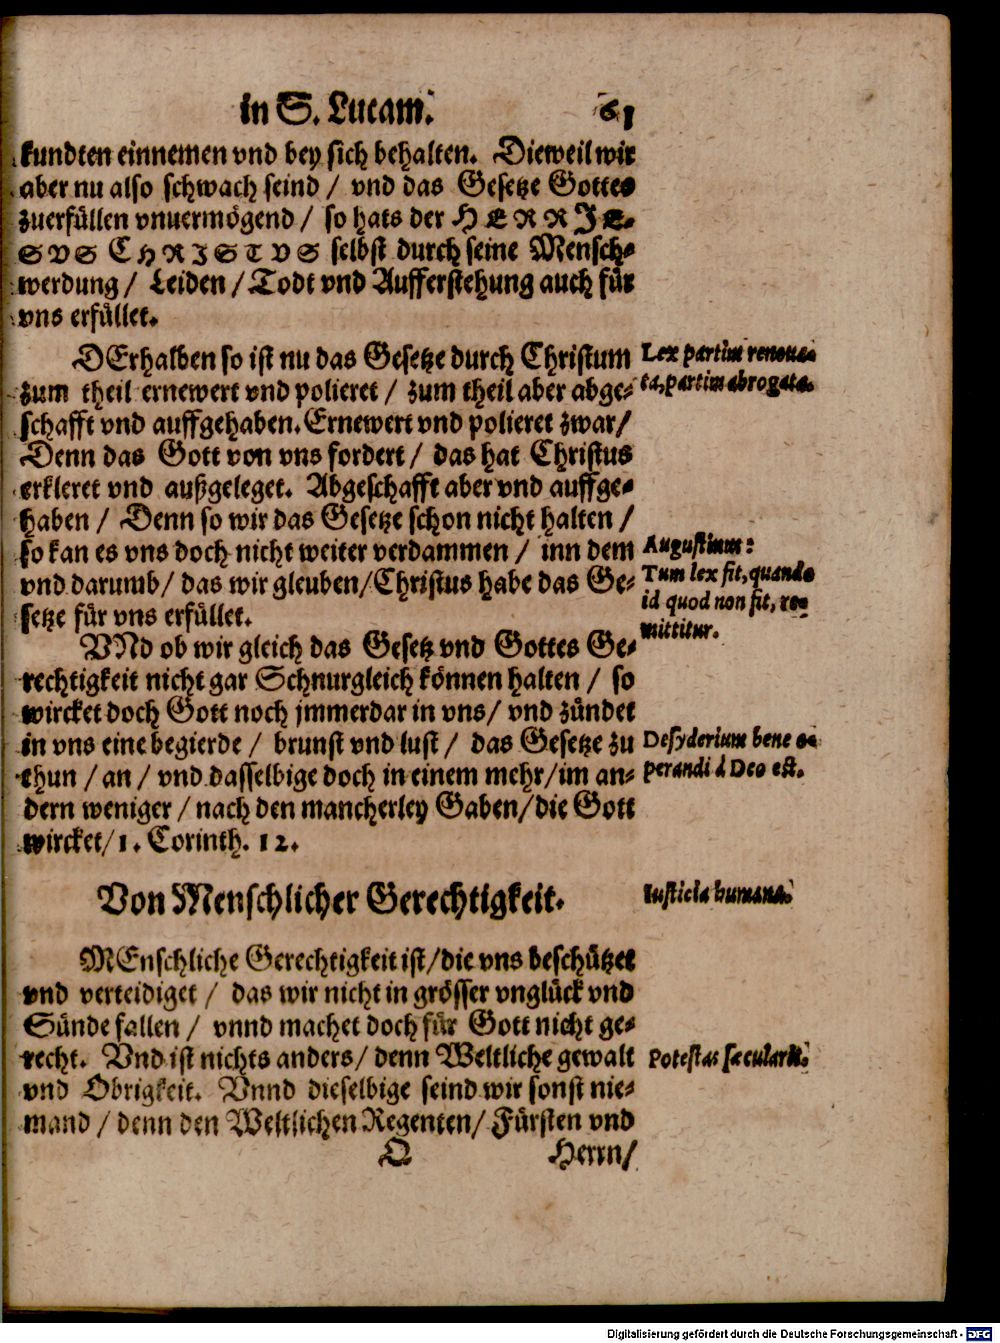 in S. Lucam. 61
kundten einnemen vnd bey sich behalten. Dieweil wir
aber nu also schwach seind / vnd das Gesetze Gottes
zuerfüllen vnuermögend / so hats der HERR JE-
SVS CHRISTVS selbst durch seine Mensch-
werdung / Leiden / Todt vnd Aufferstehung auch für
vns erfüllet.
DErhalben so ist nu das Gesetze durch Christum
zum theil ernewert vnd polieret / zum theil aber abge-
schafft vnd auffgehaben. Ernewert vnd polieret zwar /
Denn das Gott von vns fordert / das hat Christus
erkleret vnd außgeleget. Abgeschafft aber vnd auffge-
haben / Denn so wir das Gesetze schon nicht halten /
so kan es vns doch nicht weiter verdammen / inn dem
vnd darumb / das wir gleuben / Christus habe das Ge-
setze für vns erfüllet.
VNd ob wir gleich das Gesetz vnd Gottes Ge-
rechtigkeit nicht gar Schnurgleich können halten / so
wircket doch Gott noch jmmerdar in vns / vnd zündet
in vns eine begierde / brunst vnd lust / das Gesetze zu
thun / an / vnd dasselbige doch in einem mehr / im an-
dern weniger / nach den mancherley Gaben / die Gott
wircket / 1. Corinth. 12.
Von Menschlicher Gerechtigkeit.
MEnschliche Gerechtigkeit ist / die vns beschützet
vnd verteidiget / das wir nicht in grösser vnglück vnd
Sünde fallen / vnnd machet doch für Gott nicht ge-
recht. Vnd ist nichts anders / denn Weltliche gewalt
vnd Obrigkeit. Vnnd dieselbige seind wir sonst nie-
mand / denn den Weltlichen Regenten / Fürsten vnd
Q Herrn /
Lex partim renoua-
ta, partim abrogata.
Augustinus:
Tum lex fit, quando
id quod non fit, re-
mittitur.
Desyderium bene o-
perandi à Deo est.
Iusticia humana.
Potestas sæcularis.
Digitalisierung gefördert durch die Deutsche Forschungsgemeinschaft - DFG